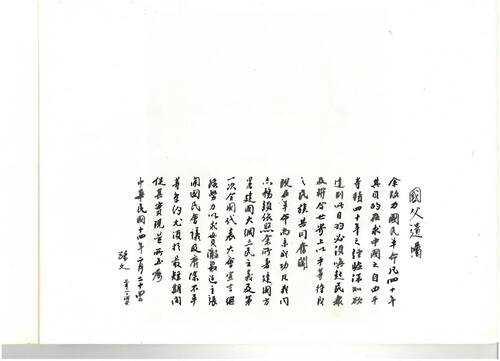 國父遺囑
余致力國民革命凡四十年
其目的在求中國之自由平
等積四十年之經驗深知欲
達到此目的必須喚起民眾
及聯合世界上以平等待我
之民族共同奮鬥
現在革命尚未成功凡我同
志務須依照余所著建國方
略建國大綱三民主義及第
一次全國代表大會宣言繼
續努力以求貫澈最近主張
開國民會議及廢除不平
等條約尤須於最短期間
促其實現是所至囑
中華民國十四年二月二十四日
孫文